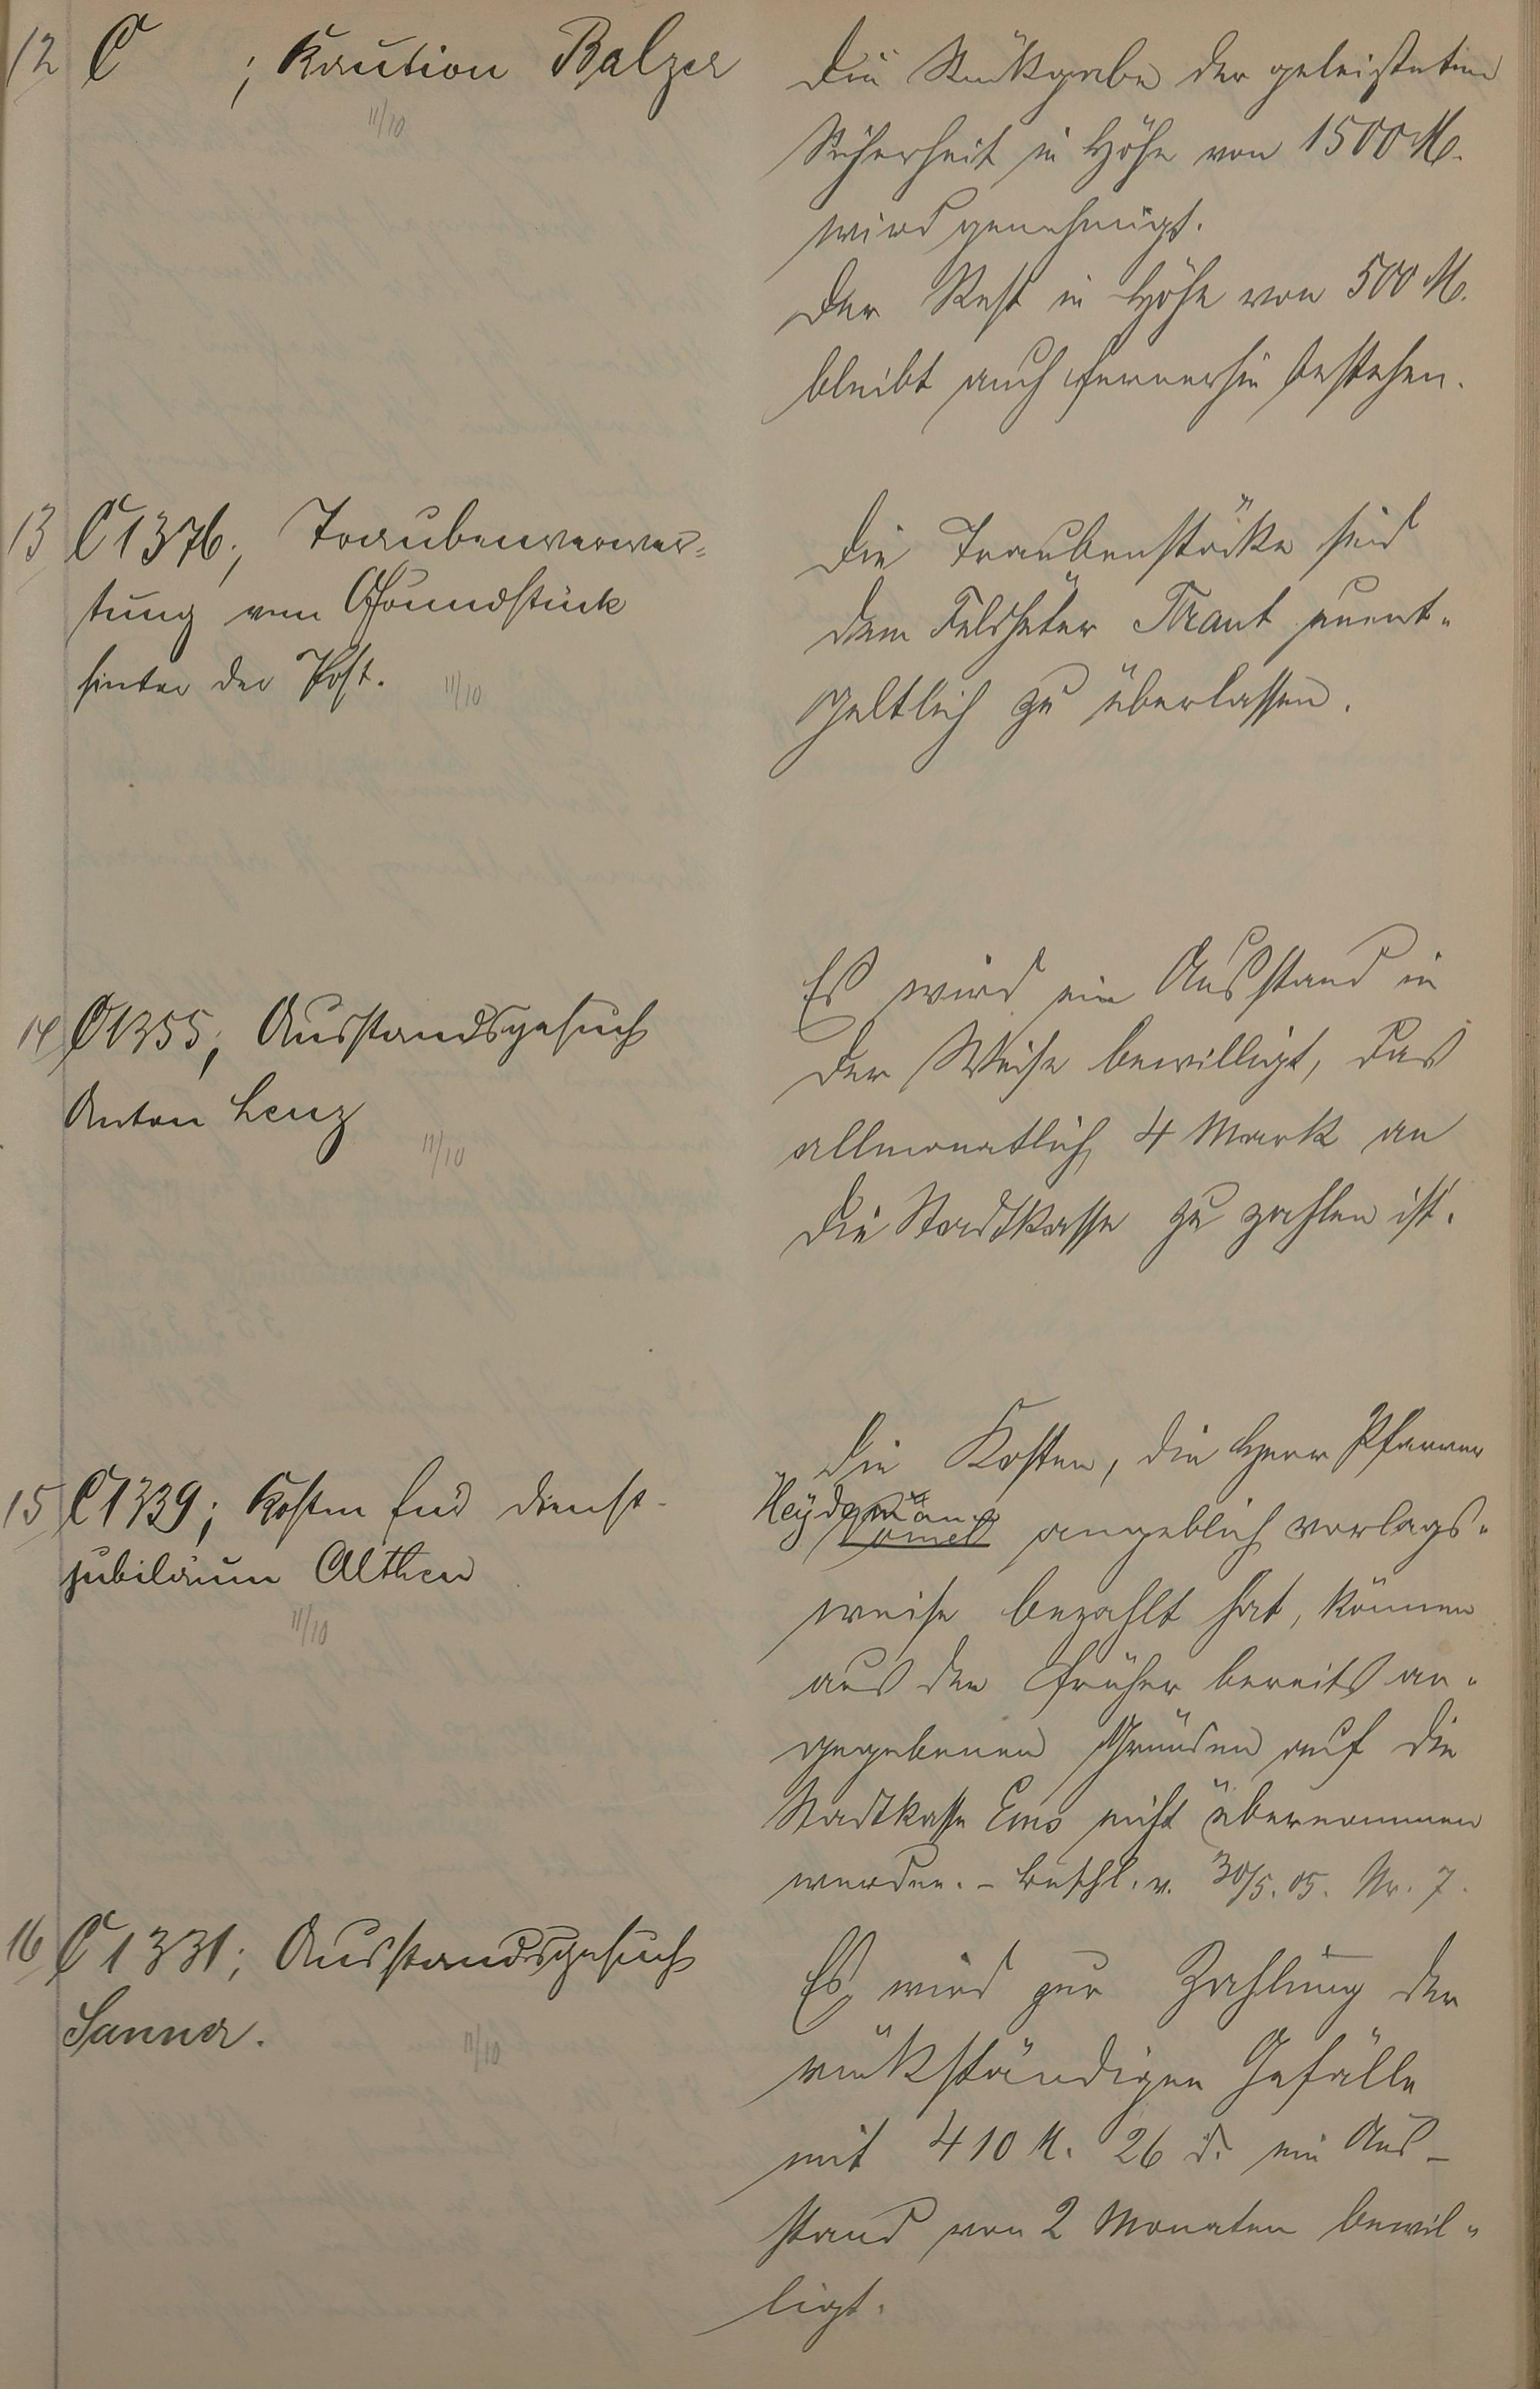 12 C ; Kaution Balzer
11/10
Die Rückgabe der geleisteten
Sicherheit in Höhe von 1500 M.
wird genehmigt.
Der Rest in Höhe von 500 M.
bleibt auch fernerhin bestehen.
13 C 1376; Traubenverwer-
tung vom Grundstück
hinter der Post.
11/10
Die Traubenstöcke sind
dem Feldhüter Traut unent-
geltlich zu überlassen.
14 C 1355; Ausstandsgesuch
Anton Lenz
11/10
Es wird ein Ausstand in
der Weise bewilligt, das
allmonatlich 4 Mark an
die Stadtkasse zu zahlen ist.
15 C 1339; Kosten für Dienst-
jubiläum Althen
11/10
Die Kosten, die Herr Pfarrer
Heydemann angeblich vorlags-
weise bezahlt hat, können
aus den früher bereits an-
gegebenen Gründen auf die
Stadtkasse Ems nicht übernommen
werden. - Beschl. v. 30/5. 05. Nr. 7.
16 C 1331; Ausstandsgesuch
Sanner.
11/10
Es wird zur Zahlung der
rückständigen Gefälle
mit 410 M. 26 d. ein Aus-
stand von 2 Monaten bewil-
ligt.